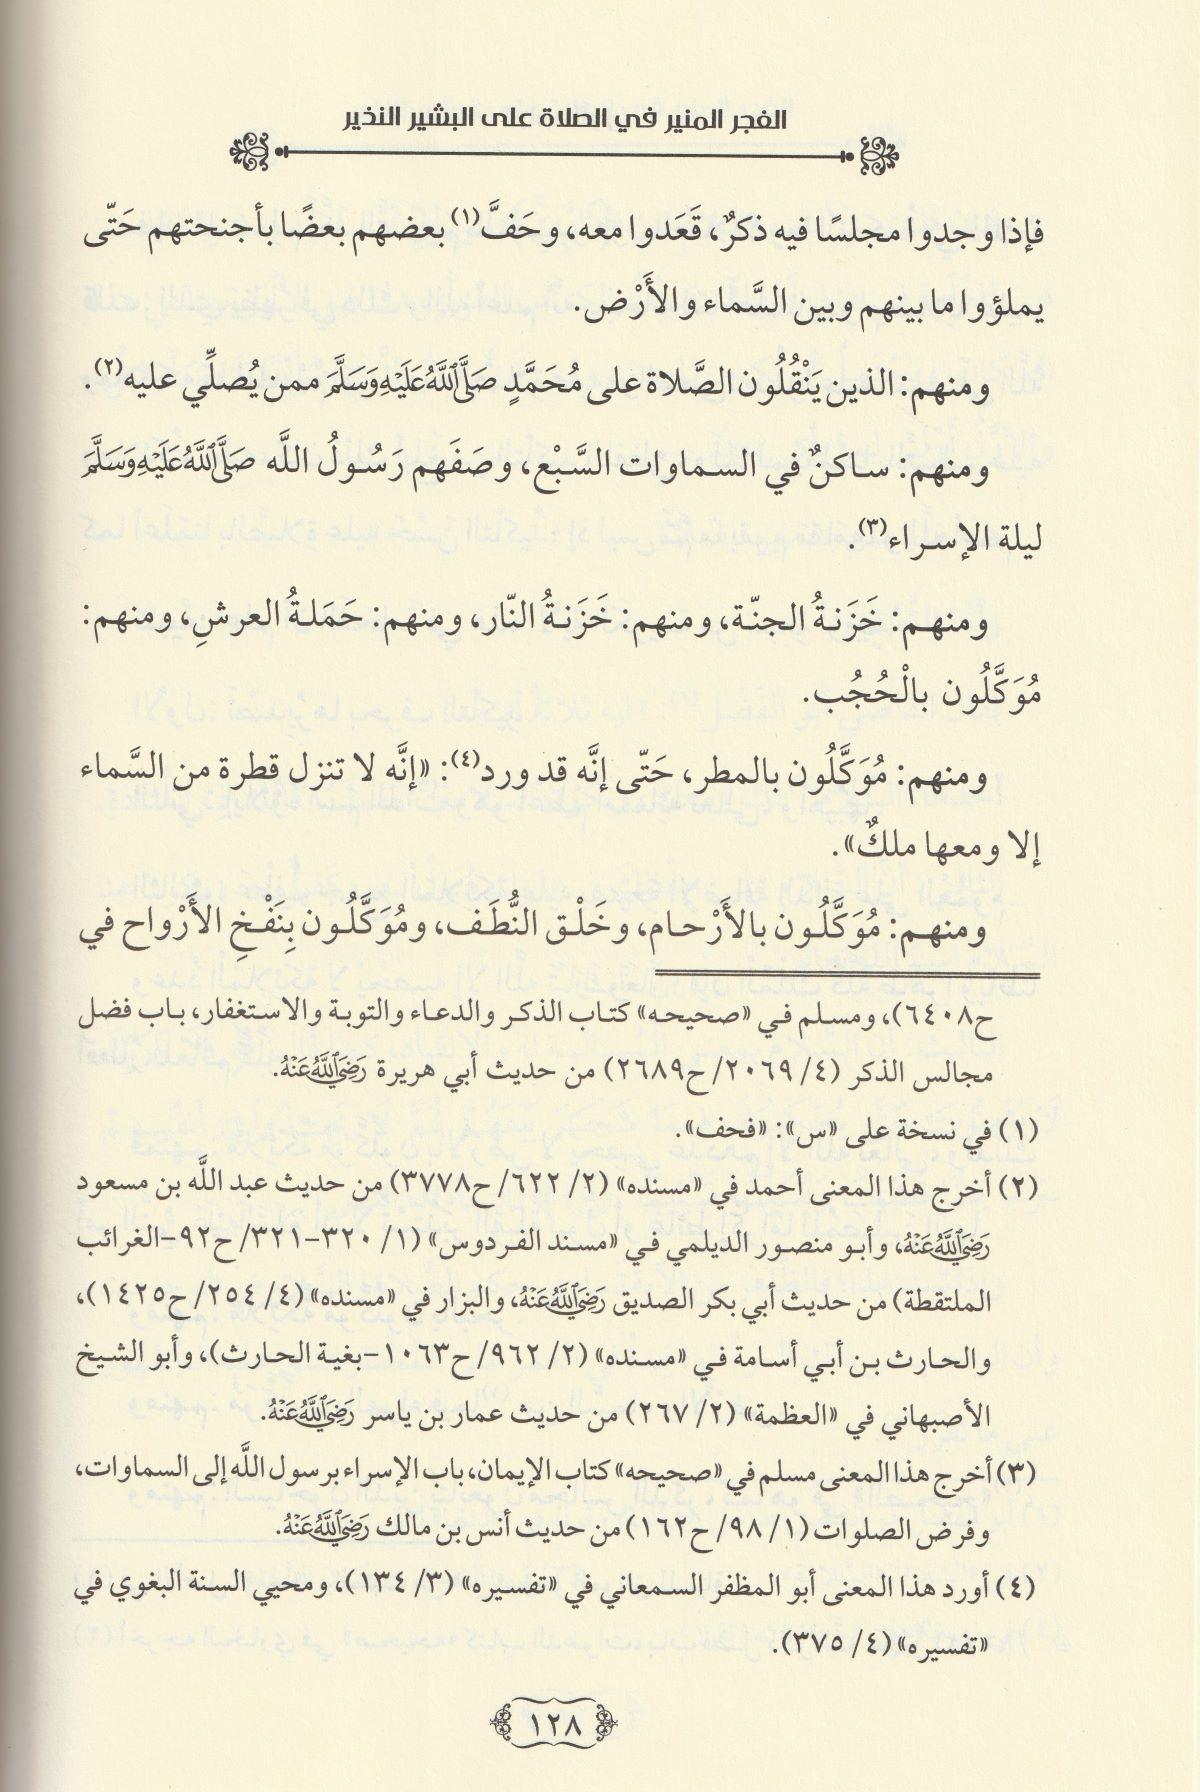 الفجر المنير في الصلاة على البشير النذير
فإذا وجدوا مجلسًا فيه ذكرٌ، قَعَدوا معه، وحَفَّ(١) بعضهم بعضًا بأجنحتهم حَتّى
يملؤوا ما بينهم وبين السَّماء والأَرْض.
ومنهم: الذين يَنْقُلُون الصَّلاة على مُحَمَّدٍ صَلَّى اللَّهُ عَلَيْهِ وَسَلَّمَ ممن يُصلِّي عليه(٢).
ومنهم: ساكنٌ في السماوات السَّبْع، وصَفَهم رَسُولُ اللَّه صَلَّى اللَّهُ عَلَيْهِ وَسَلَّمَ
ليلة الإسراء(٣).
ومنهم: خَزَنةُ الجنّة، ومنهم: خَزَنةُ النّار، ومنهم: حَمَلةُ العرشِ، ومنهم:
مُوَكَّلُون بالْحُجُب.
ومنهم: مُوَكَّلُون بالمطر، حَتّى إنَّه قد ورد(٤): «إنَّه لا تنزل قطرة من السَّماء
إلا ومعها ملكٌ».
ومنهم: مُوَكَّلُون بالأَرْحام، وخَلْق النُّطَف، ومُوَكَّلُون بِنَفْخِ الأَرْواح في
ح٦٤٠٨)، ومسلم في «صحيحه» كتاب الذكر والدعاء والتوبة والاستغفار، باب فضل
مجالس الذكر (٤/ ٢٠٦٩/ ح٢٦٨٩) من حديث أبي هريرة رَضِيَ اللَّهُ عَنْهُ.
(١) في نسخة على «س»: «فحف».
(٢) أخرج هذا المعنى أحمد في «مسنده» (٢/ ٦٢٢/ ح٣٧٧٨) من حديث عبد اللَّه بن مسعود
رَضِيَ اللَّهُ عَنْهُ، وأبو منصور الديلمي في «مسند الفردوس» (١/ ٣٢٠-٣٢١/ ح٩٢-الغرائب
الملتقطة) من حديث أبي بكر الصديق رَضِيَ اللَّهُ عَنْهُ، والبزار في «مسنده» (٤/ ٢٥٤/ ح١٤٢٥)،
والحارث بن أبي أسامة في «مسنده» (٢/ ٩٦٢/ ح١٠٦٣-بغية الحارث)، وأبو الشيخ
الأصبهاني في «العظمة» (٢/ ٢٦٧) من حديث عمار بن ياسر رَضِيَ اللَّهُ عَنْهُ.
(٣) أخرج هذا المعنى مسلم في «صحيحه» كتاب الإيمان، باب الإسراء برسول اللَّه إلى السماوات،
وفرض الصلوات (١/ ٩٨/ ح١٦٢) من حديث أنس بن مالك رَضِيَ اللَّهُ عَنْهُ.
(٤) أورد هذا المعنى أبو المظفر السمعاني في «تفسيره» (٣/ ١٣٤)، ومحيي السنة البغوي في
«تفسيره» (٤/ ٣٧٥).
١٢٨